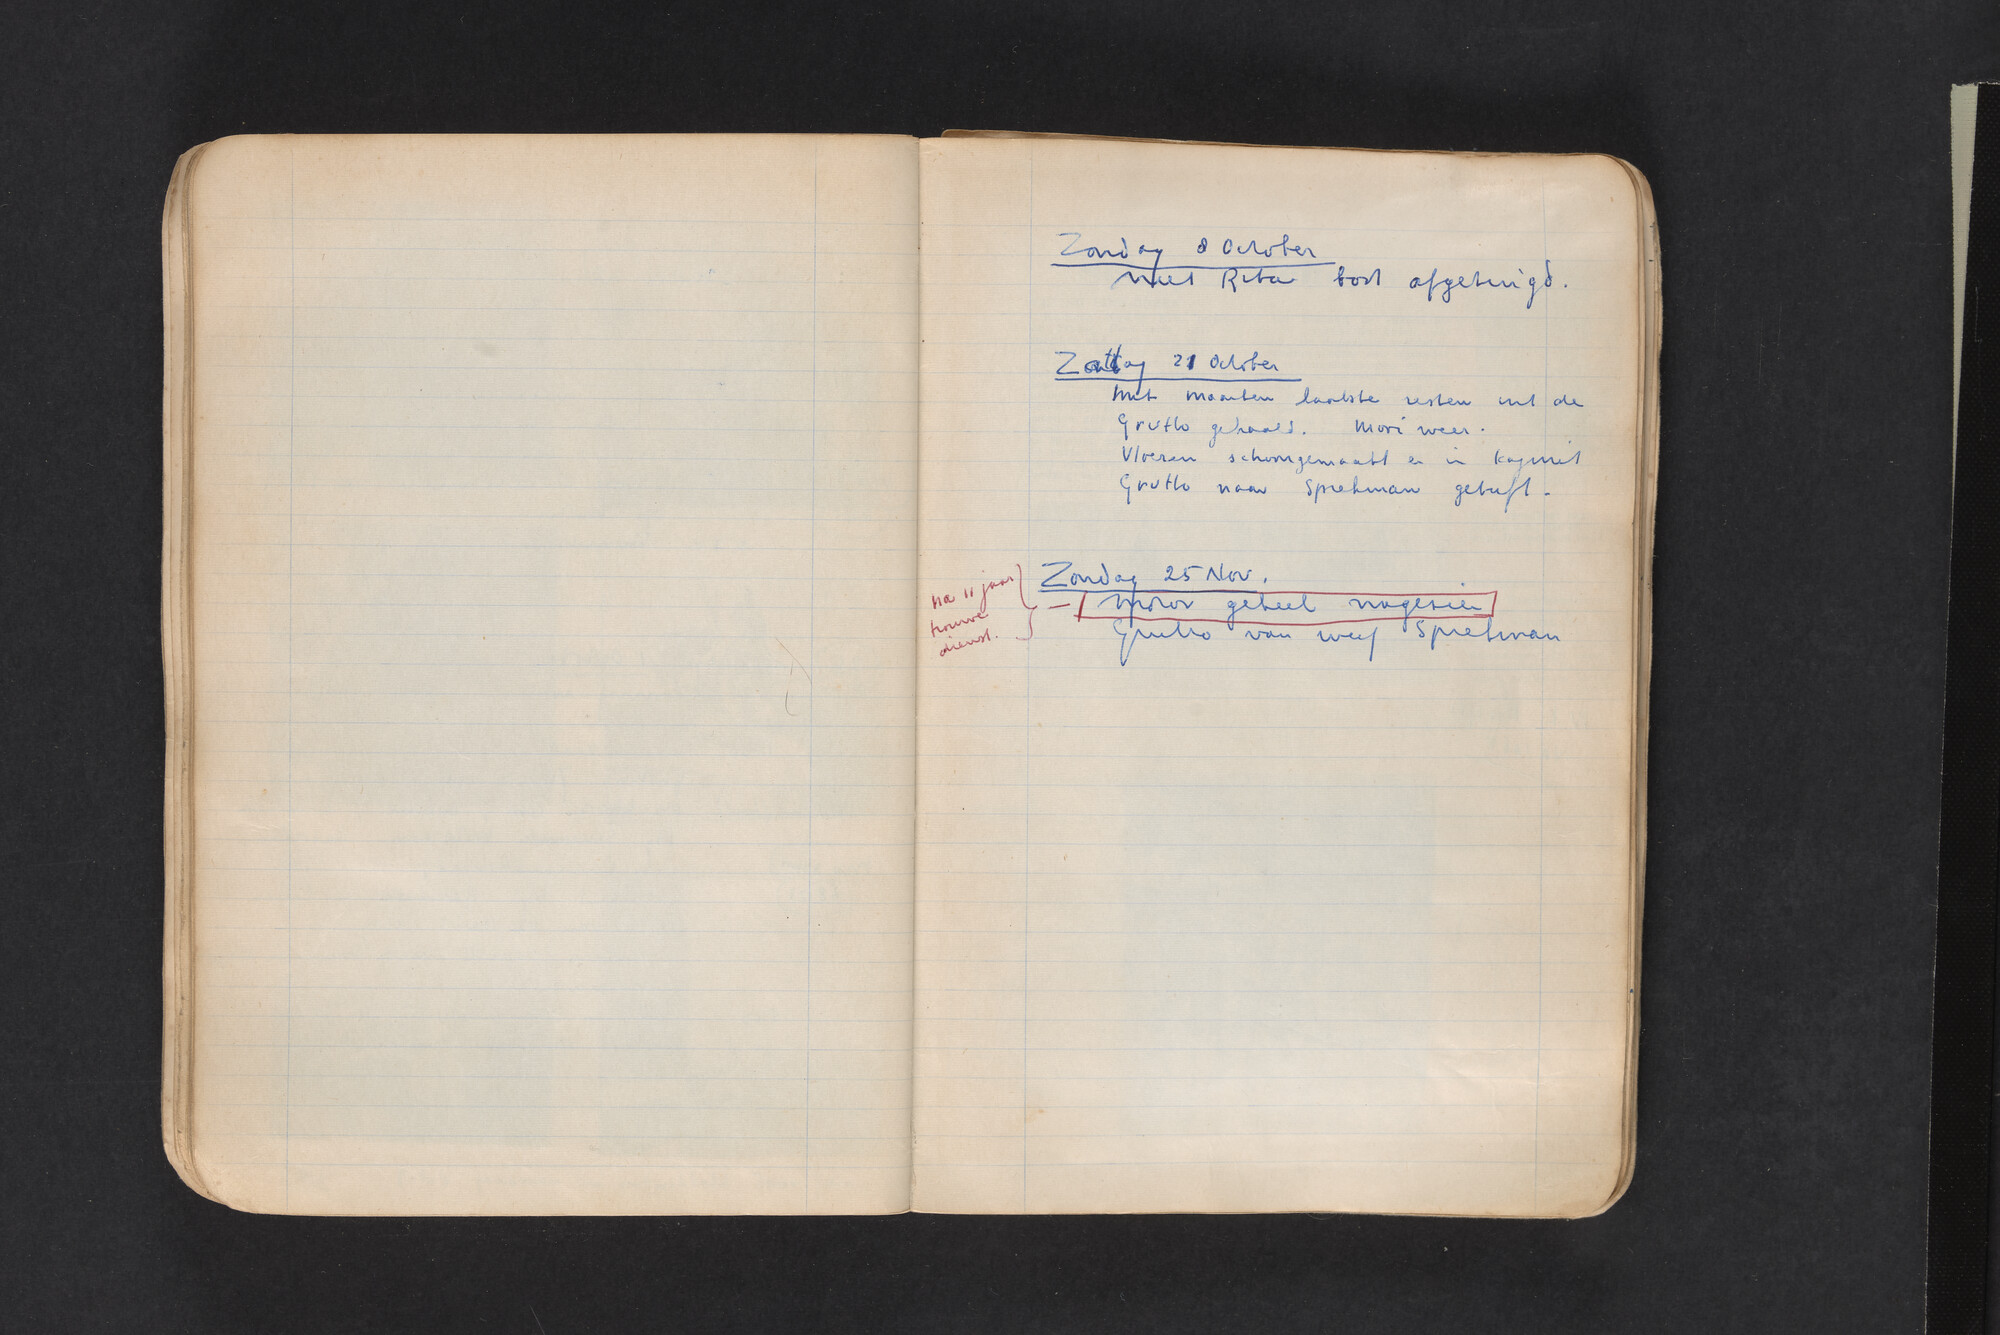 Zondag 8 October
met Rita boot afgetuigd.
Zattag 21 October
Met Maarten laatste resten uit de
Grutto gehaald. Mooi weer.
Vloeren schoongemaakt en in kajuit
Grutto naar Spretman gebuft.
Zondag 25 Nov.
Motor geheel nagezien
Grutto van werf Spretman
na 11 jaar
trouwe
dienst.